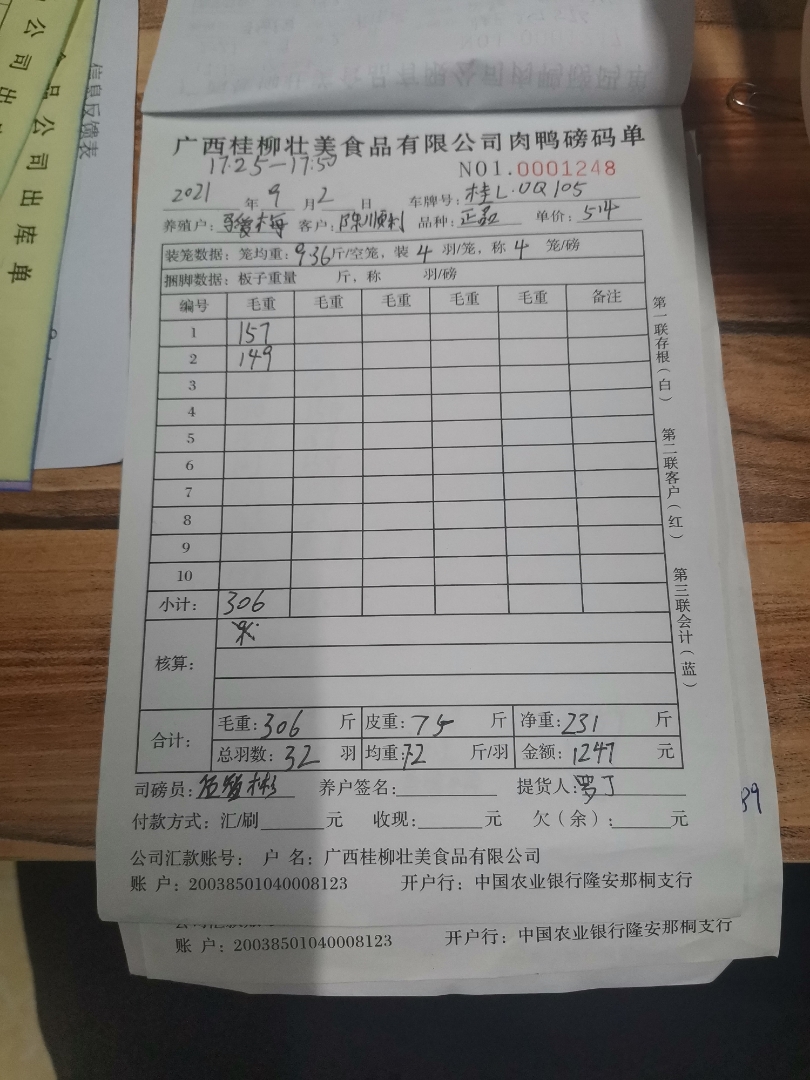 公司出
食品公司出库单
信息反馈表
广西桂柳壮美食品有限公司肉鸭磅码单
17:25—17:50 NO1.0001248
2021年9月2日 车牌号:桂L·UQ105
养殖户: 客户:陈顺利 品种: 单价:5.4
装笼数据: 笼均重:9.36斤/空笼, 装4羽/笼, 称4笼/磅
捆脚数据: 板子重量 斤, 称 羽/磅
编号 毛重 毛重 毛重 毛重 毛重 备注
1 157
2 149
3
4
5
6
7
8
9
10
小计: 306
核算:
合计: 毛重:306斤 皮重:75斤 净重:231斤
总羽数:32羽 均重:7.2斤/羽 金额:1247元
司磅员: 养户签名: 提货人:罗丁
付款方式: 汇/刷 元 收现: 元 欠(余): 元
公司汇款账号: 户 名: 广西桂柳壮美食品有限公司
账 户: 20038501040008123 开户行: 中国农业银行隆安那桐支行
第一联存根(白) 第二联客户(红) 第三联会计(蓝)
账 户: 20038501040008123 开户行: 中国农业银行隆安那桐支行